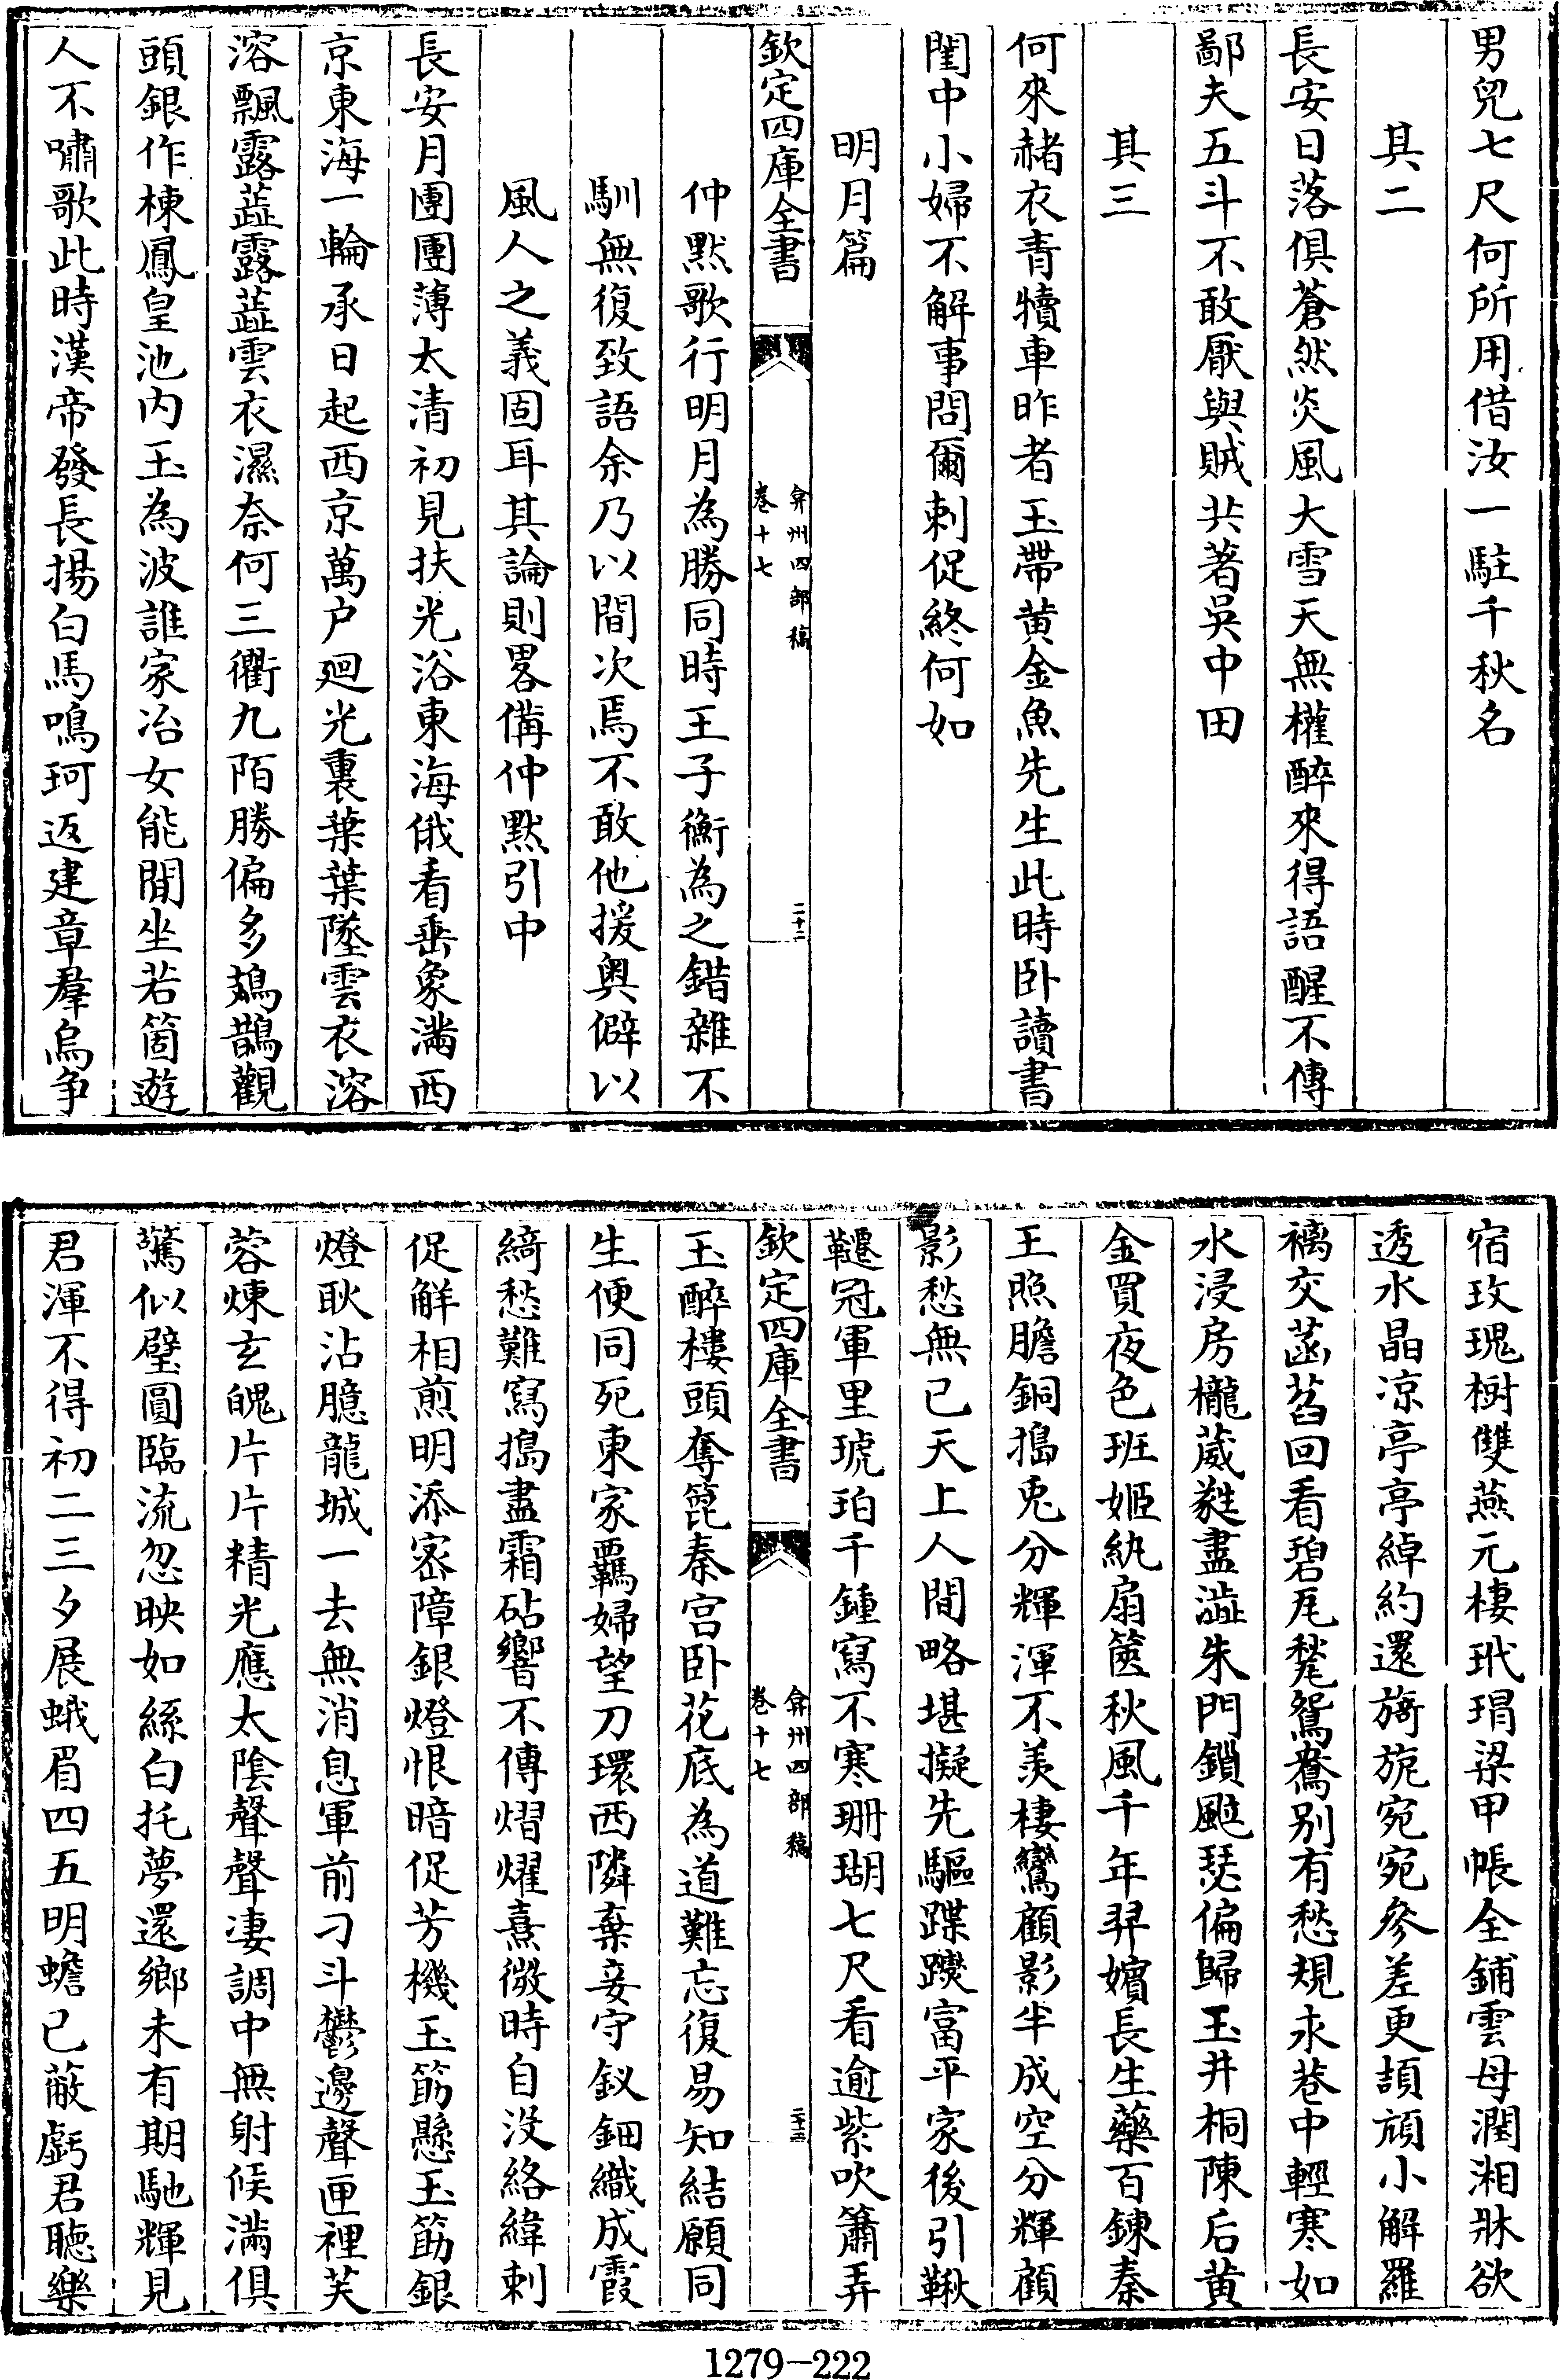 男兒七尺何所用借汝一駐千秋名
其二
長安日落俱蒼然炎風大雪天無權醉來得語醒不傳
鄙夫五斗不敢厭與賊共著吳中田
其三
何來赭衣青犢車昨者玉帶黃金魚先生此時卧讀書
閨中小婦不解事問爾刺促終何如
明月篇
欽定四庫全書
弇州四部稿
卷十七
二十二
仲黙歌行明月為勝同時王子衡為之錯雜不
馴無復致語余乃以間次焉不敢他援奥僻以
風人之義固耳其論則畧備仲黙引中
長安月團團薄太清初見扶光浴東海俄看垂象滿西
京東海一輪承日起西京萬户廻光裏葉葉墜雲衣溶
溶飄露蕋露蕋雲衣濕奈何三衢九陌勝偏多鳷鵲觀
頭銀作棟鳳皇池内玉為波誰家冶女能閒坐若箇遊
人不嘯歌此時漢帝發長揚白馬鳴珂返建章羣烏争
宿玫瑰樹雙燕元棲玳瑁梁甲帳全鋪雲母潤湘牀欲
透水晶凉亭亭綽約還旖旎宛宛參差更頡頏小解羅
褵交菡萏回看碧瓦甃鴛鴦别有愁規永巷中輕寒如
水浸房櫳葳蕤盡澁朱門鎖颭瑟偏歸玉井桐陳后黄
金買夜色班姬紈扇篋秋風千年羿嬪長生藥百鍊秦
王照膽銅搗兎分輝渾不羡棲鸞顧影半成空分輝顧
影愁無已天上人間略堪擬先驅蹀躞富平家後引鞦
韆冠軍里琥珀千鍾寫不寒珊瑚七尺看逾紫吹簫弄
欽定四庫全書
弇州四部稿
卷十七
二十三
玉醉樓頭奪箆秦宫卧花底為道難忘復易知結願同
生便同死東家羈婦望刀環西隣棄妾守釵鈿織成霞
綺愁難寫搗盡霜砧響不傳熠燿熹微時自没絡緯刺
促解相煎明添宻障銀燈恨暗促芳機玉筯懸玉筯銀
燈耿沾臆龍城一去無消息軍前刁斗鬱邊聲匣裡芙
蓉煉玄魄片片精光應太陰聲聲凄調中無射候滿俱
驚似璧圓臨流忽映如絲白托夢還鄉未有期馳輝見
君渾不得初二三夕展蛾眉四五明蟾已蔽虧君聽樂
1279-222